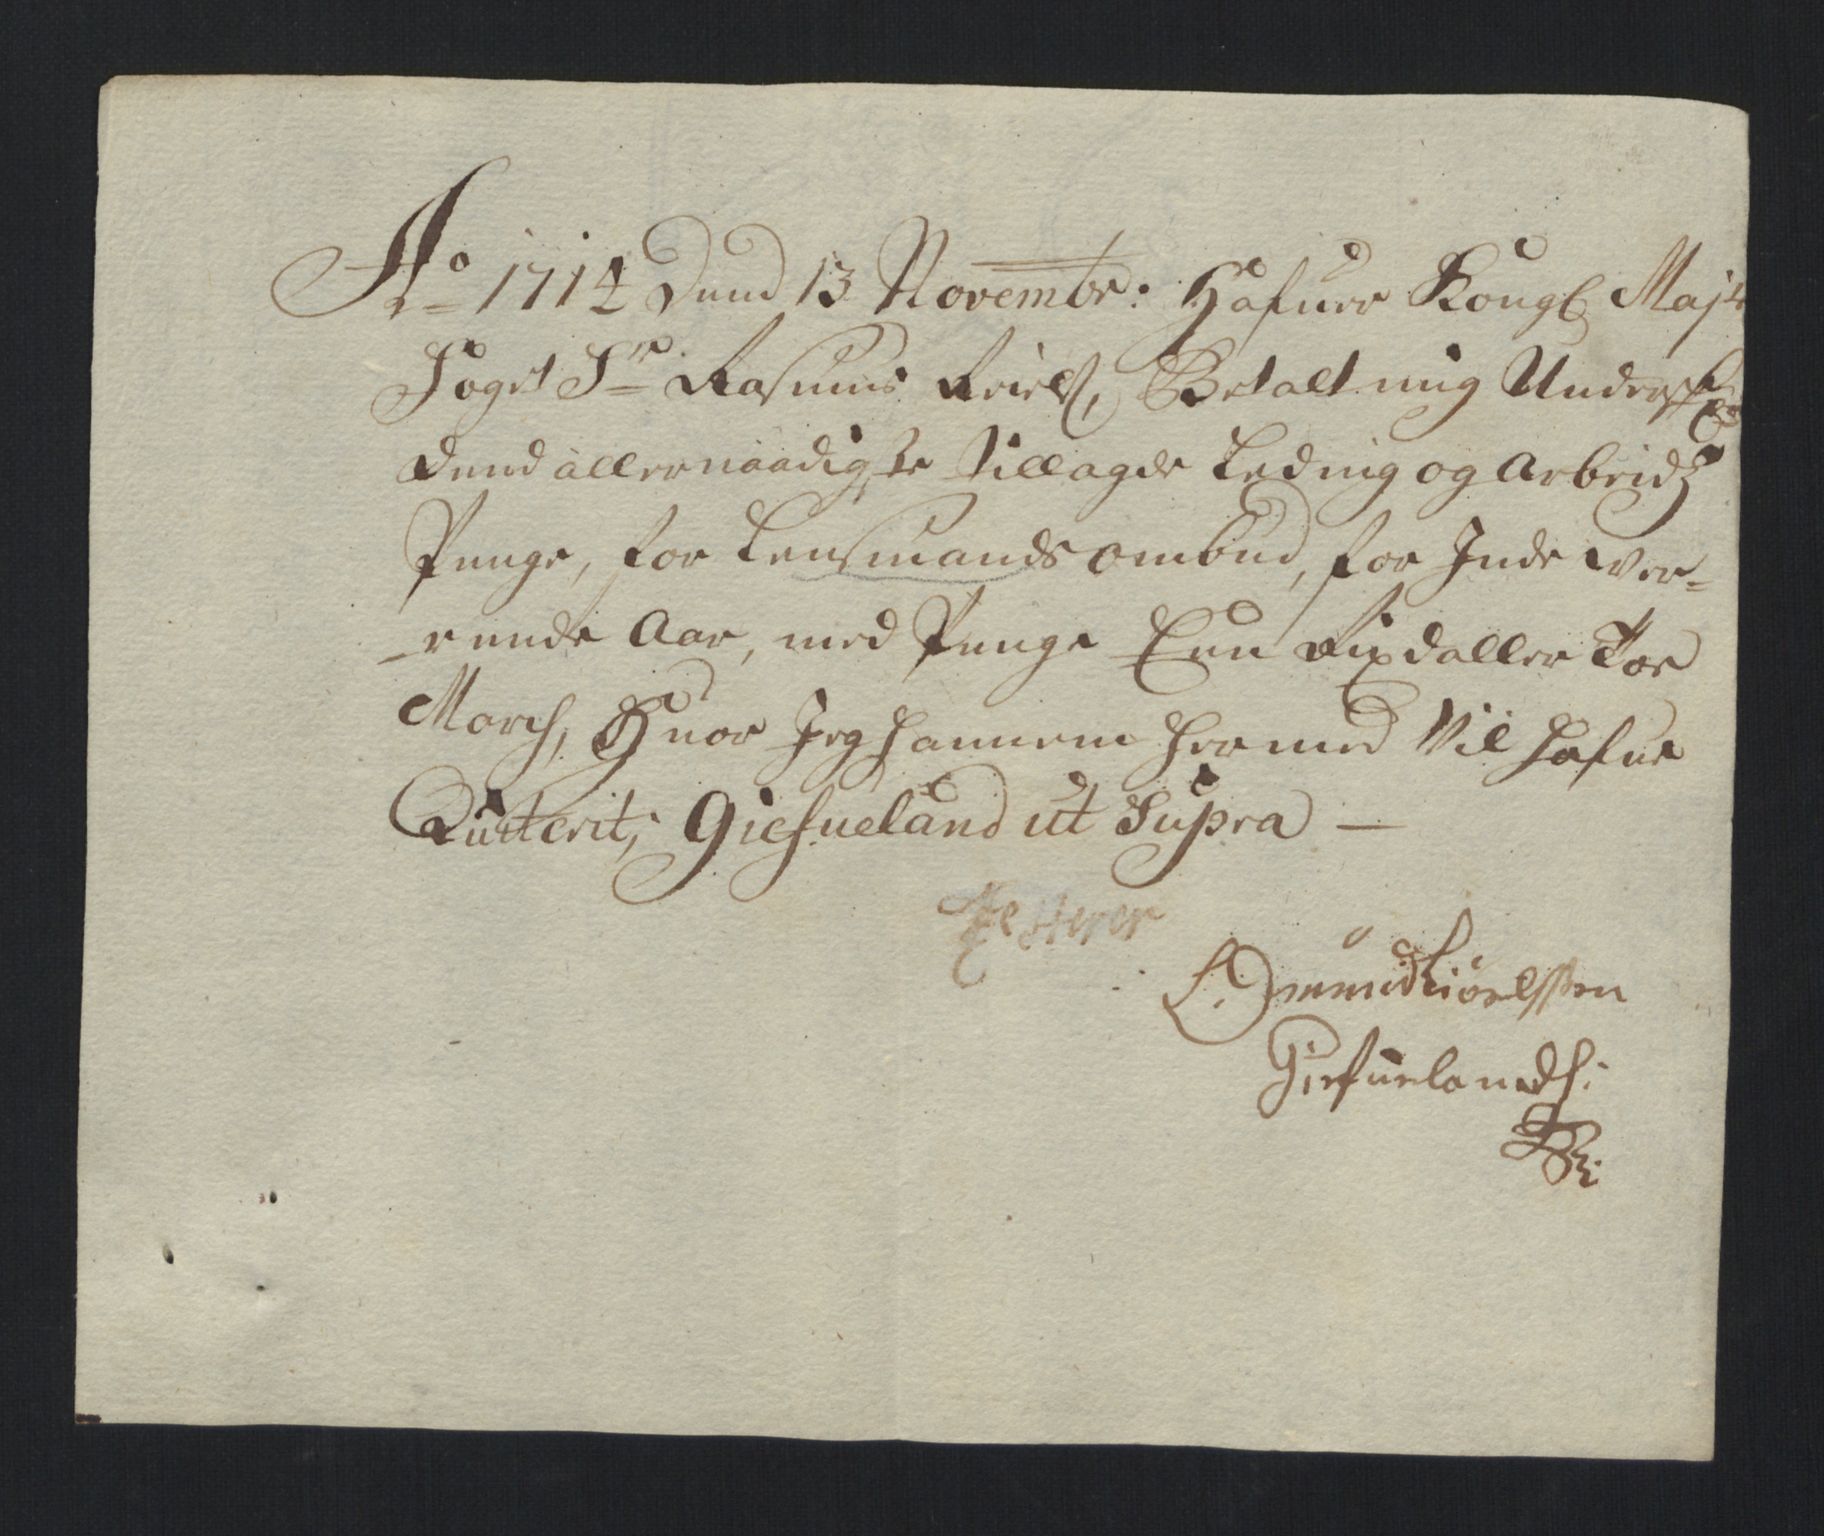 Ao 1714 Dend 13 Novembr: Hafuer Kongl Maj
Foget Sr Rasmus Krield, Betalt mig Undersk
dend allernaadigste tillagde Leding og Arbeidz
Penge, for Lensmands ombud, for Inde wer-
-rende Aar, med Penge Een Rixdaller Toe
March, Huor Jeg hannem hermed Vil hafue
Quiterit; Giefueland ut Supra —
Amund
Giefuelandh: